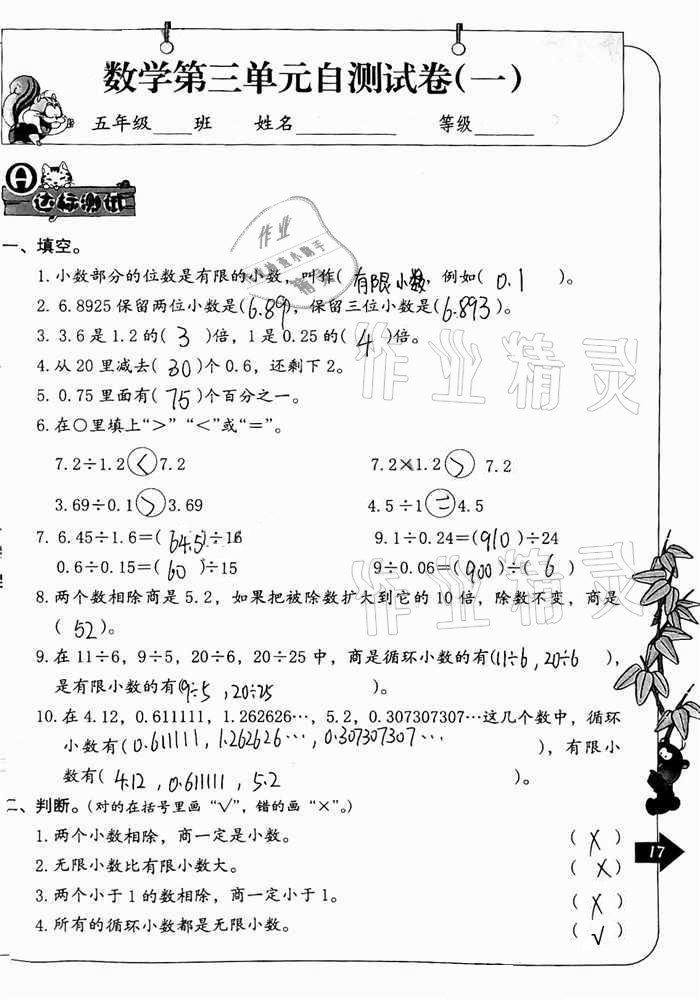 数学第三单元自测试卷(一)
五年级____班 姓名__________ 等级______
A
达标测试
一、填空。
1.小数部分的位数是有限的小数，叫作( 有限小数 )，例如( 0.1 )。
2. 6.8925保留两位小数是(6.89)，保留三位小数是(6.893)。
3. 3.6是1.2的( 3 )倍，1是0.25的( 4 )倍。
4.从20里减去(30)个0.6，还剩下2。
5. 0.75里面有(75)个百分之一。
6.在○里填上“>”“<”或“=”。
7.2÷1.2<7.2 7.2×1.2>7.2
3.69÷0.1>3.69 4.5÷1=4.5
7. 6.45÷1.6=(64.5)÷16 9.1÷0.24=(910)÷24
0.6÷0.15=(60)÷15 9÷0.06=(900)÷(6)
8.两个数相除商是5.2，如果把被除数扩大到它的10倍，除数不变，商是
(52)。
9.在11÷6，9÷5，20÷6，20÷25中，商是循环小数的有(11÷6,20÷6)，
是有限小数的有(9÷5,20÷25)。
10.在4.12，0.611111，1.262626…，5.2，0.307307307…这几个数中，循环
小数有(0.611111,1.262626…,0.307307307…)，有限小
数有(4.12,0.611111,5.2)。
二、判断。(对的在括号里画“√”，错的画“×”。)
1.两个小数相除，商一定是小数。 (×)
2.无限小数比有限小数大。 (×)
3.两个小于1的数相除，商一定小于1。 (×)
4.所有的循环小数都是无限小数。 (√)
17
作业精灵
作业精灵